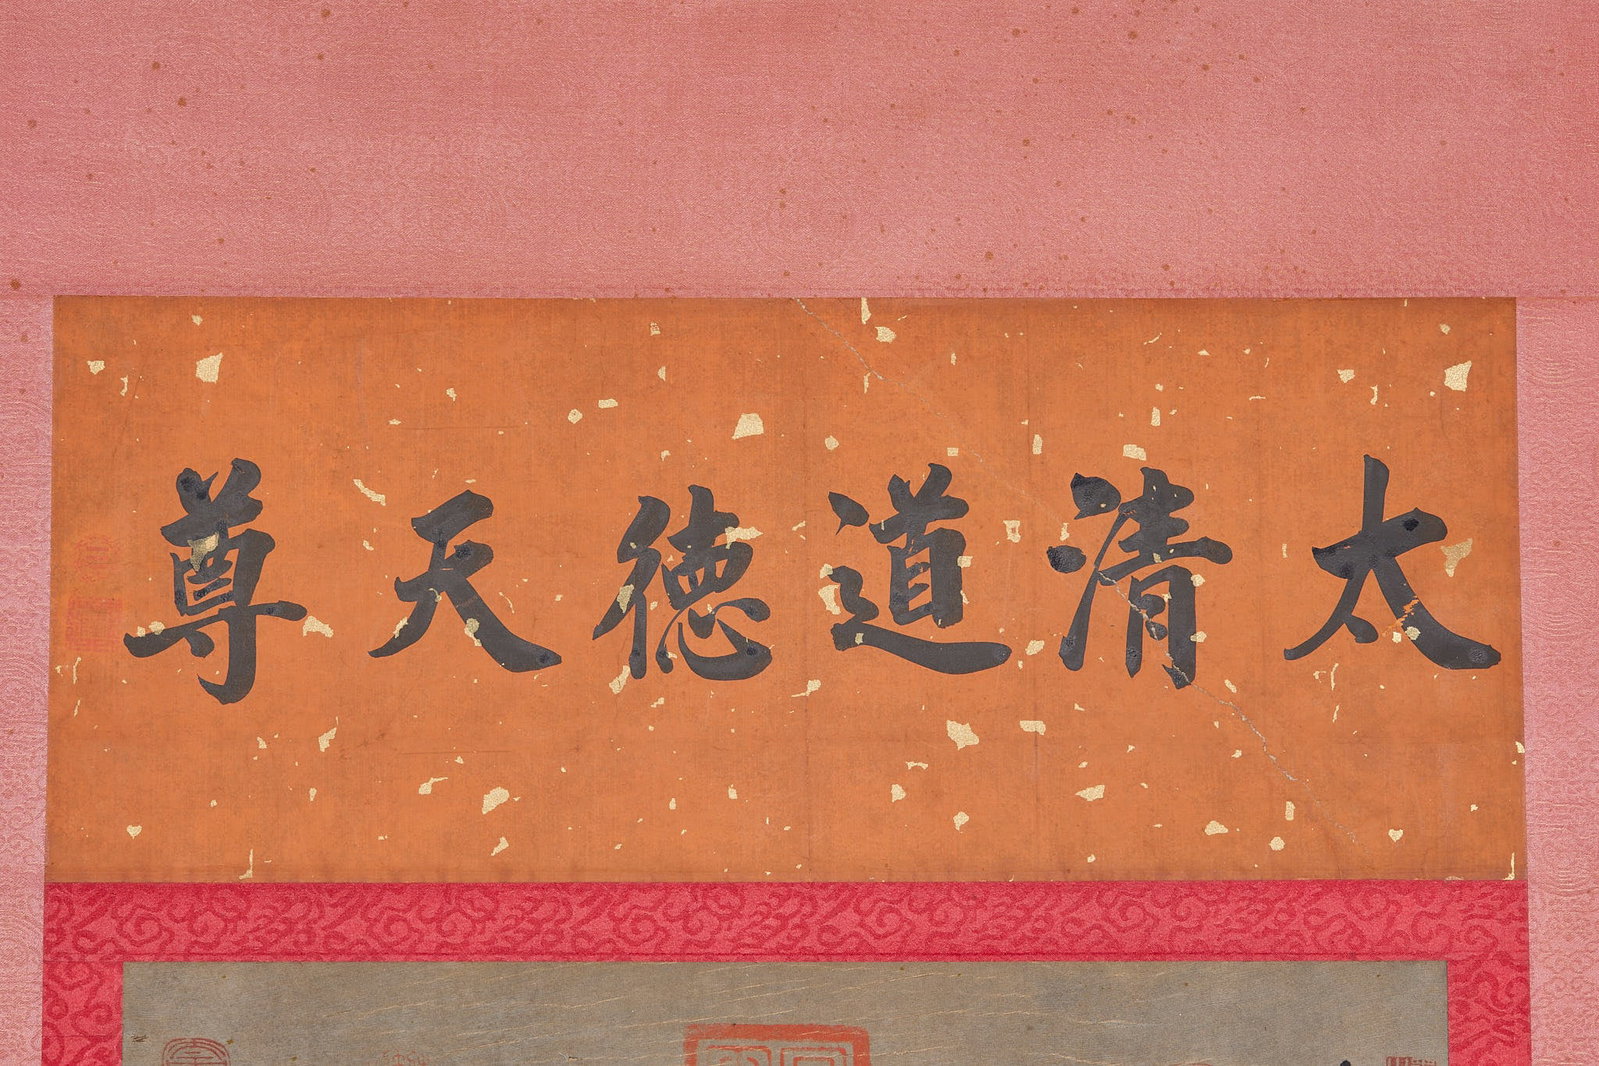 太清道德天尊